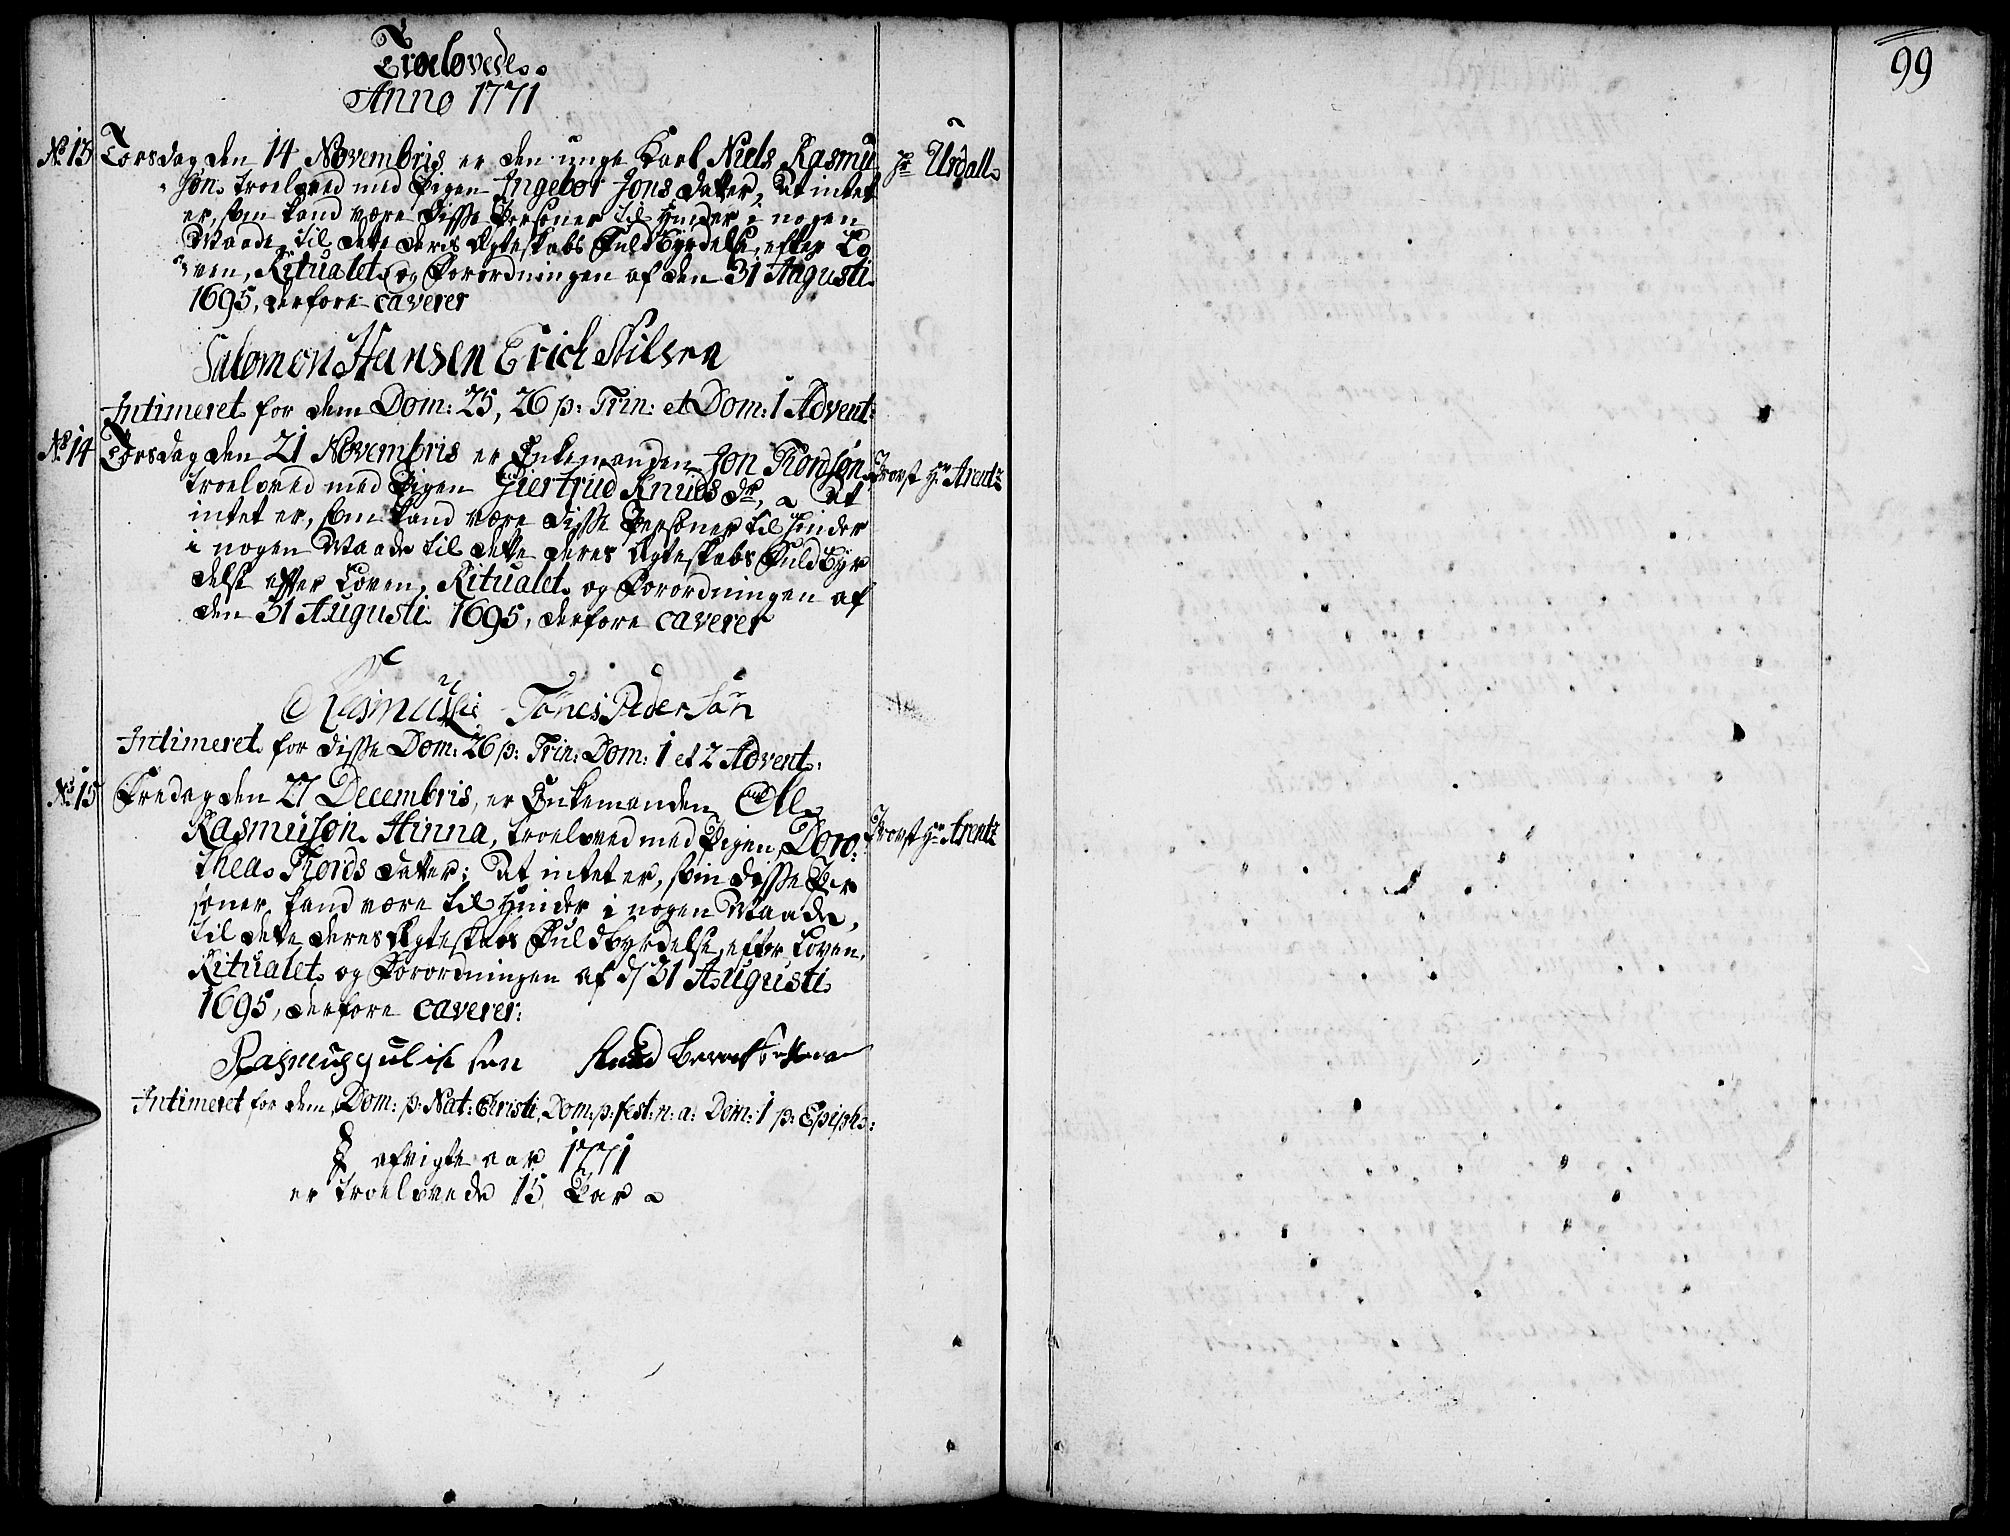 Troelovede
Anno 1771
No 13 Torsdag den 14 Novembris er den unge Karl Niels Rasmu Hr Urdall
Søn troeloved med Pigen Ingebor Jons datter, At intet
er, som kand være disse Persone til Hinder i nogen
Maade til dette deris Ægteskabs Fuldbyrdelse efter Lo
ven, Ritualet og Forordningen af den 31 Augusti
1695, derfore caverer
Salomon Hansen Erich
Intimeret for dem Dom: 25, 26 p: Trin: et Dom: 1 Advent:
No 14 Torsdag den 21 Novembris er Enkemanden Jon Tiordsøn Provst Hr Arentz
troeloved med Pigen Giertrud Knuds dr, At
intet er, som kand være disse Persone til Hinder
i nogen Maade til dette deres Ægteskabs Fuldbyr
delse efter Loven, Ritualet og Forordningen af
den 31 Augusti 1695, derfore caverer
Tønes Peder Søn
Intimeret for disse Dom: 26 p: Trin: Dom: 1 et 2 Advent:
No 15 Fredag den 27 Decembris, er Enkemanden Ole
Rasmusøn Hinna, troeloved med Pigen Doro: Provst Hr Arentz
thea Tiords datter; At intet er, som disse Per
soner kand være til Hinder i nogen Maade,
til dette deres Ægteskabs Fuldbyrdelse, efter Loven,
Ritualet og Forordningen af d/ 31 Augusti
1695, derfore caverer:
Rasmus sen Knud
Intimeret for dem Dom: p: Nat: Christi, Dom: p: fest: n: a: Dom: 1 p: Epiph:
I afvigte aar 1771
er troelovede 15 Par
99